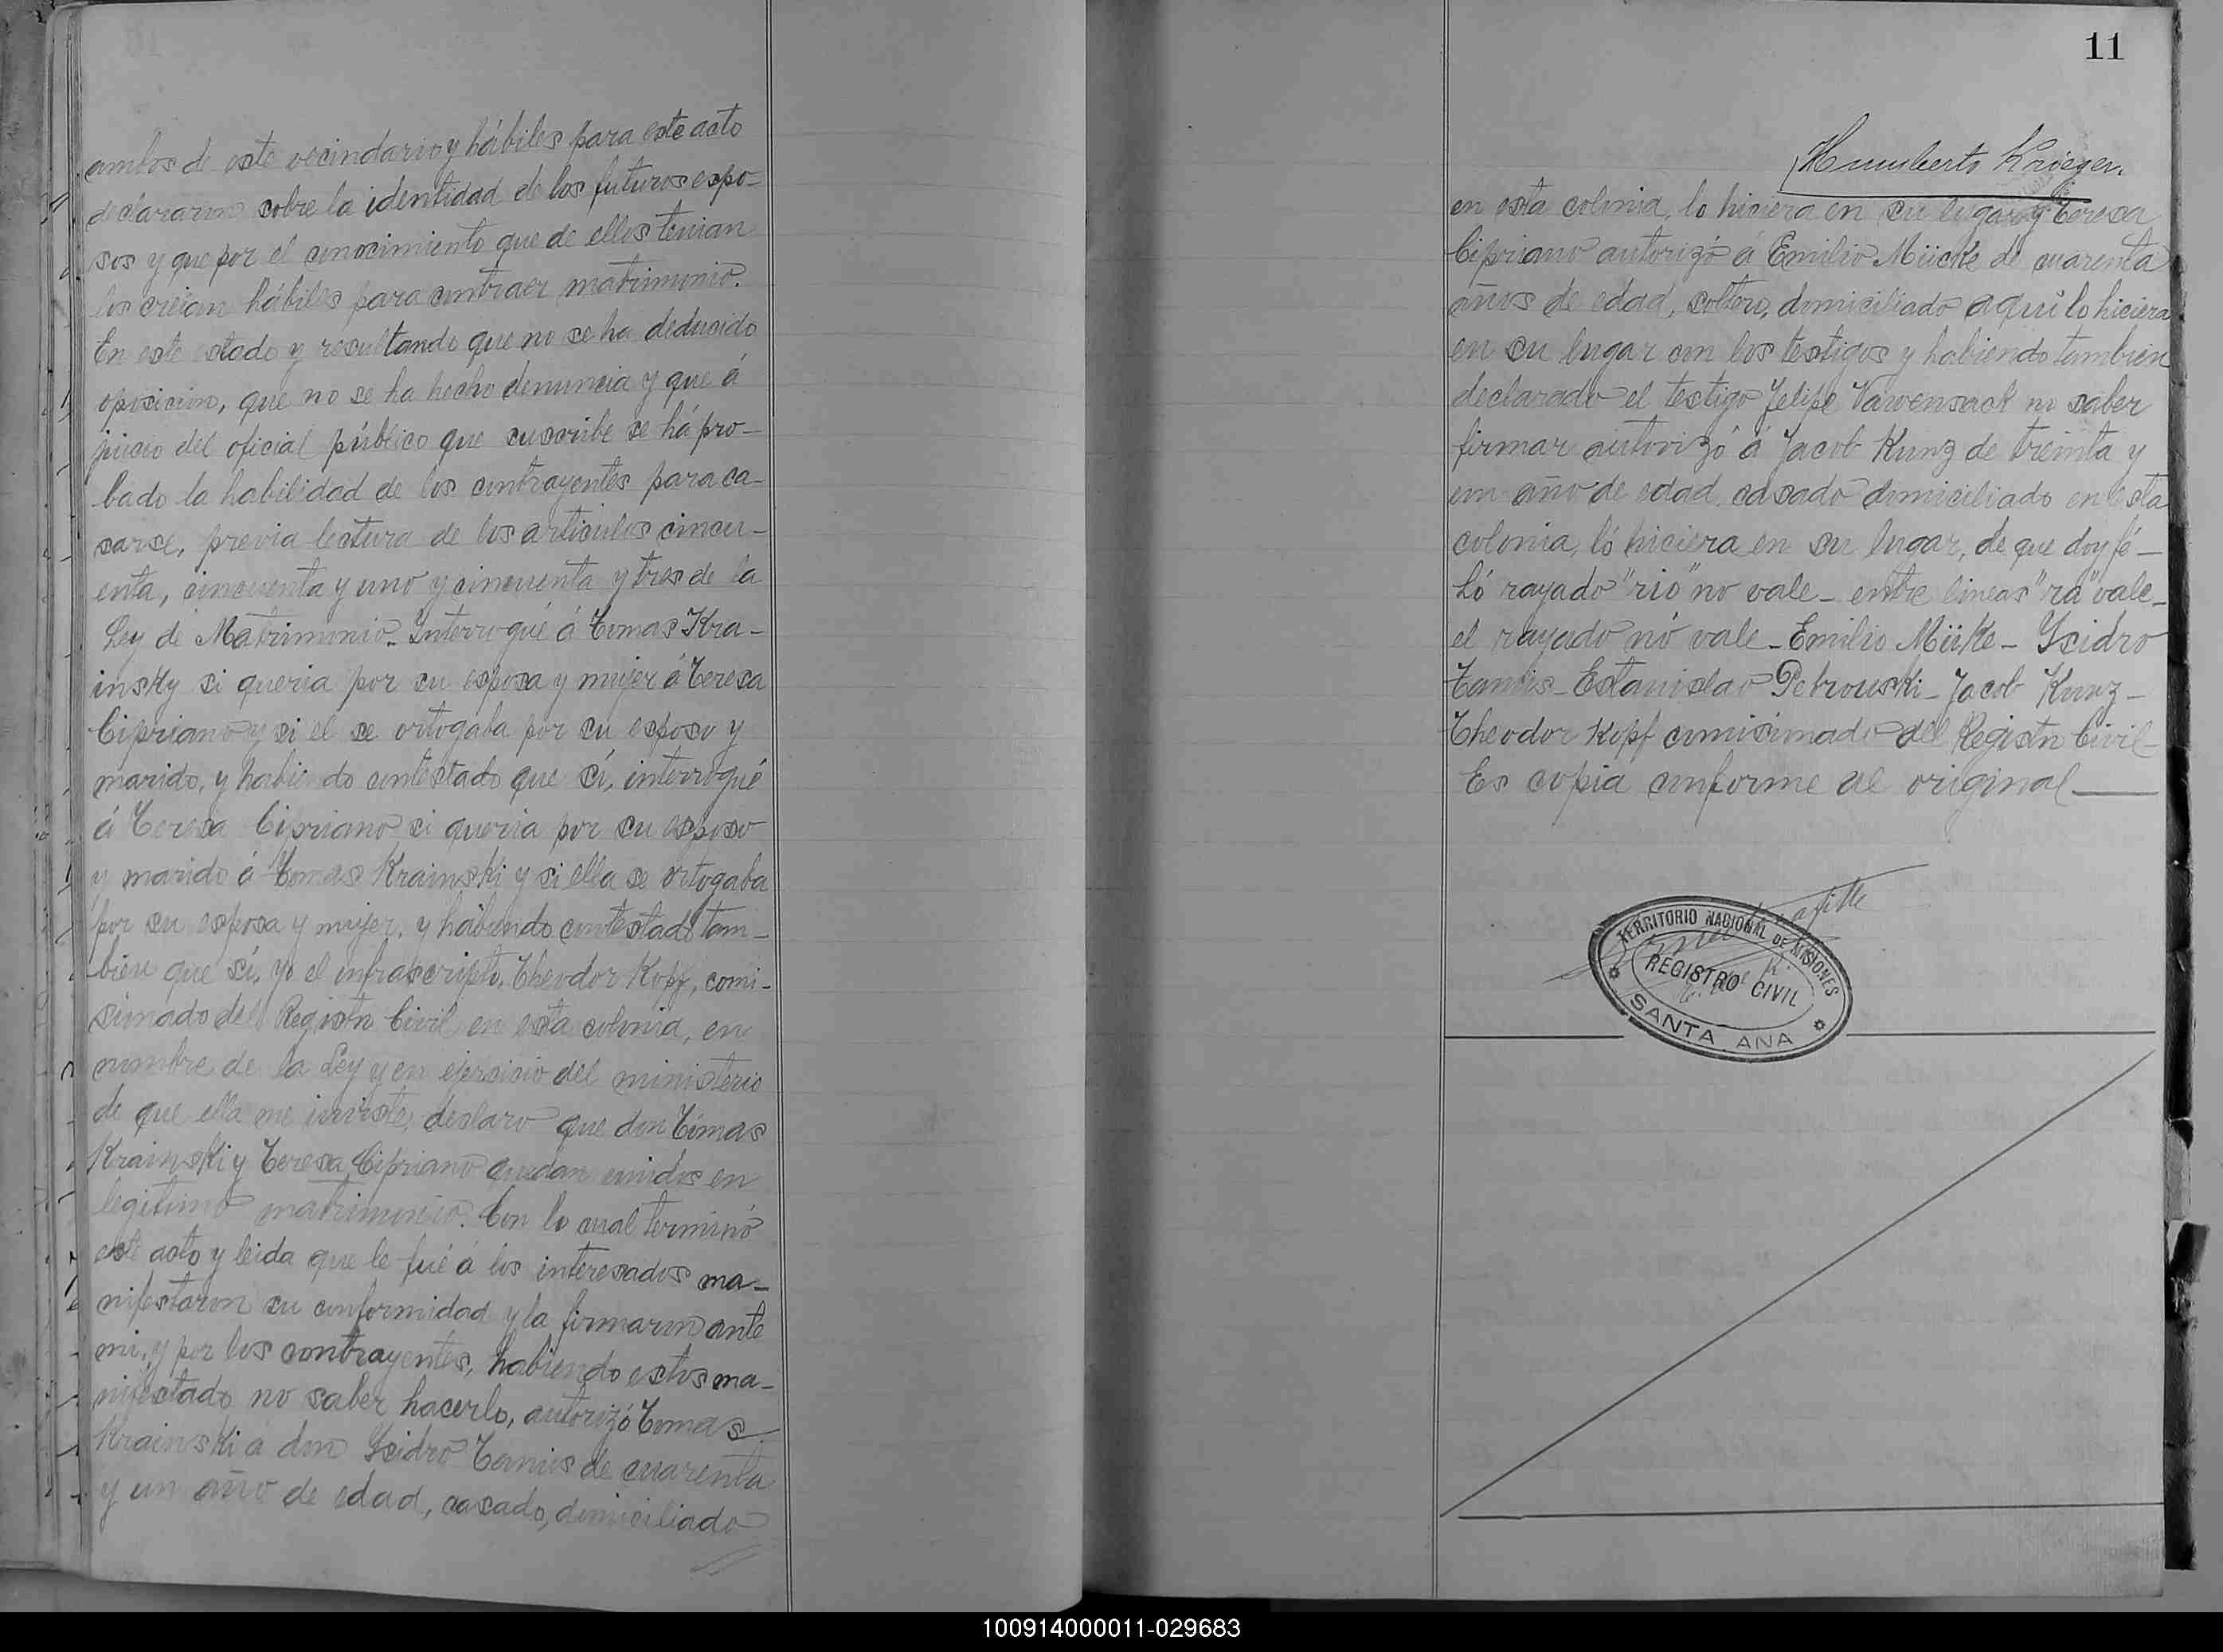 ambos de este vecindario y hábiles para este acto
declararon sobre la identidad de los futuros espo-
sos y que por el conocimiento que de ellos tenian
los creian hábiles para contraer matrimonio.
En este estado y resultando que no se ha deducido
oposicion, que no se ha hecho denuncia y que á
juicio del oficial público que suscribe se há pro-
bado la habilidad de los contrayentes para ca-
sarse, previa lectura de los articulos cincu-
enta, cincuenta y uno y cincuenta y tres de la
Ley de Matrimonio. Interrogué á Tomas Kra-
insky si queria por su esposa y mujer á Teresa
Cipriano y si el se ortogaba por su esposo y
marido, y habiendo contestado que sí, interrogué
á Teresa Cipriano si queria por su esposo
y marido á Tomas Krainski y si ella se ortogaba
por su esposa y mujer, y habiendo contestado tam-
bien que sí, yo el infrascripto, Theodor Kopf, comi-
sionado del Registro Civil en esta colonia, en
nombre de la Ley y en ejercicio del ministerio
de que ella me inviste, declaro que don Tomas
Krainski y Teresa Cipriano quedan unidos en
legitimo matrimonio. Con lo cual terminó
este acto y leida que le fué á los interesados ma-
nifestaron su conformidad y la firmaron ante
mi, y por los contrayentes, habiendo estos ma-
nifestado no saber hacerlo, autorizó Tomas
Krainski á don Ysidro Tamiis de cuarenta
y un año de edad, casado, domiciliado
11
Humberto Krieger.
en esta colonia, lo hiciera en su lugar y Teresa
Cipriano autorizó á Emilio Mücke de cuarenta
años de edad, soltero, domiciliado aqui lo hiciera
en su lugar con los testigos y habiendo tambien
declarado el testigo Felipe Vawensack no saber
firmar autorizó á Jacob Kunz de treinta y
un año de edad, casado domiciliado en esta
colonia, ló hiciera en su lugar, de que doy fé-
Ló rayado "rio" no vale - entre lineas "ra" vale-
el rayado nó vale - Emilio Müke - Ysidro
Tamiis - Estanislao Petrouski - Jacob Kunz -
Theodor Kopf comisionado del Registro Civil -
Es copia conforme al original
TERRITORIO NACIONAL DE MISIONES
REGISTRO CIVIL
SANTA ANA
100914000011-029683